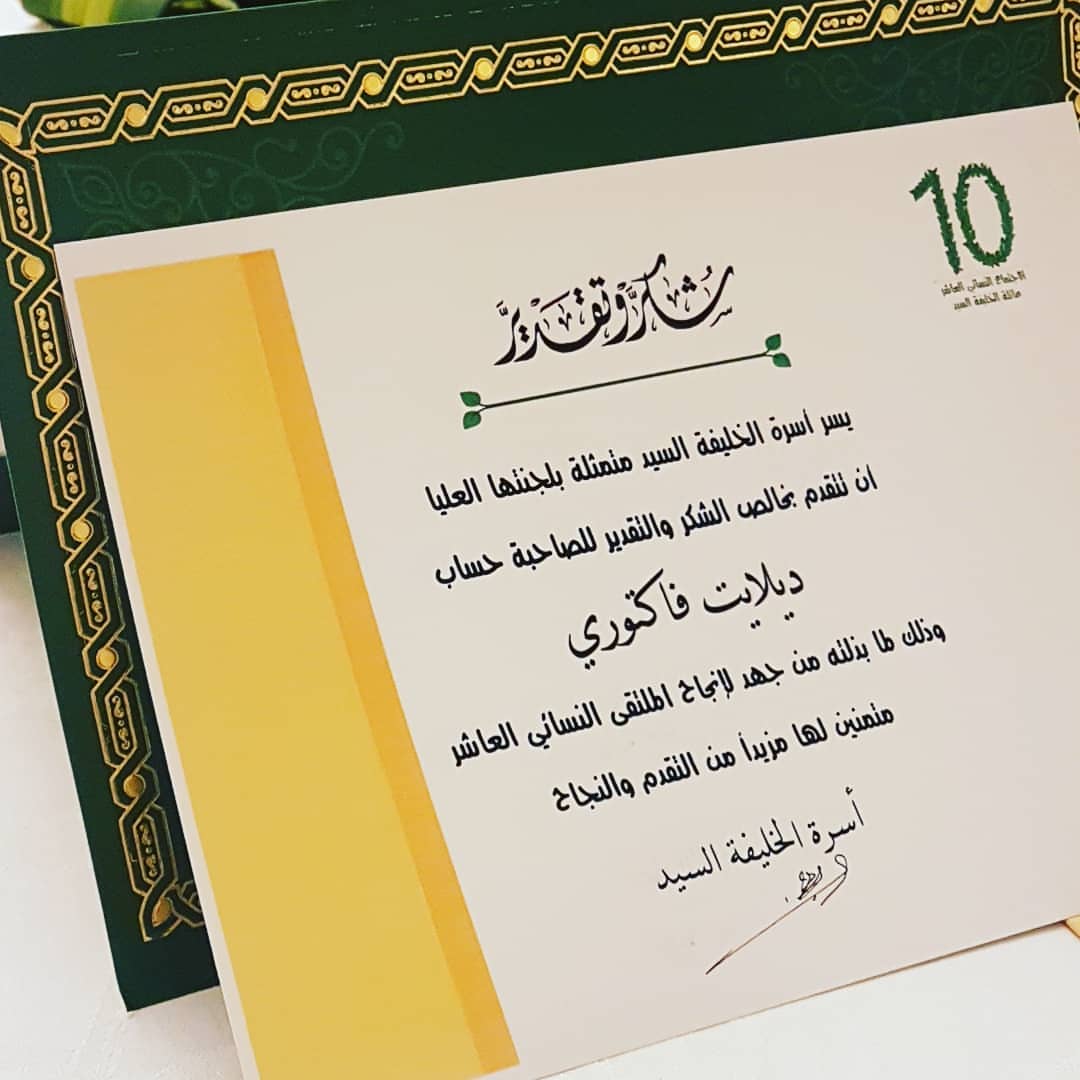 10
الاجتماع النسائي العاشر
عائلة الخليفة السيد
شكر وتقدير
يسر أسرة الخليفة السيد متمثلة بلجنتها العليا
ان تتقدم بخالص الشكر والتقدير للصاحبة حساب
ديلايت فاكتوري
وذلك لما بذلته من جهد لإنجاح الملتقى النسائي العاشر
متمنين لها مزيداً من التقدم والنجاح
أسرة الخليفة السيد